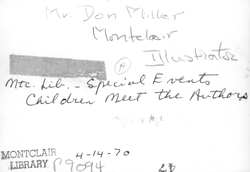 Mr. Don Miller
Montclair
Illustrator
A
Mtc. Lib. - Special Events
Children Meet the Authors
MONTCLAIR
LIBRARY
4-14-70
P9094